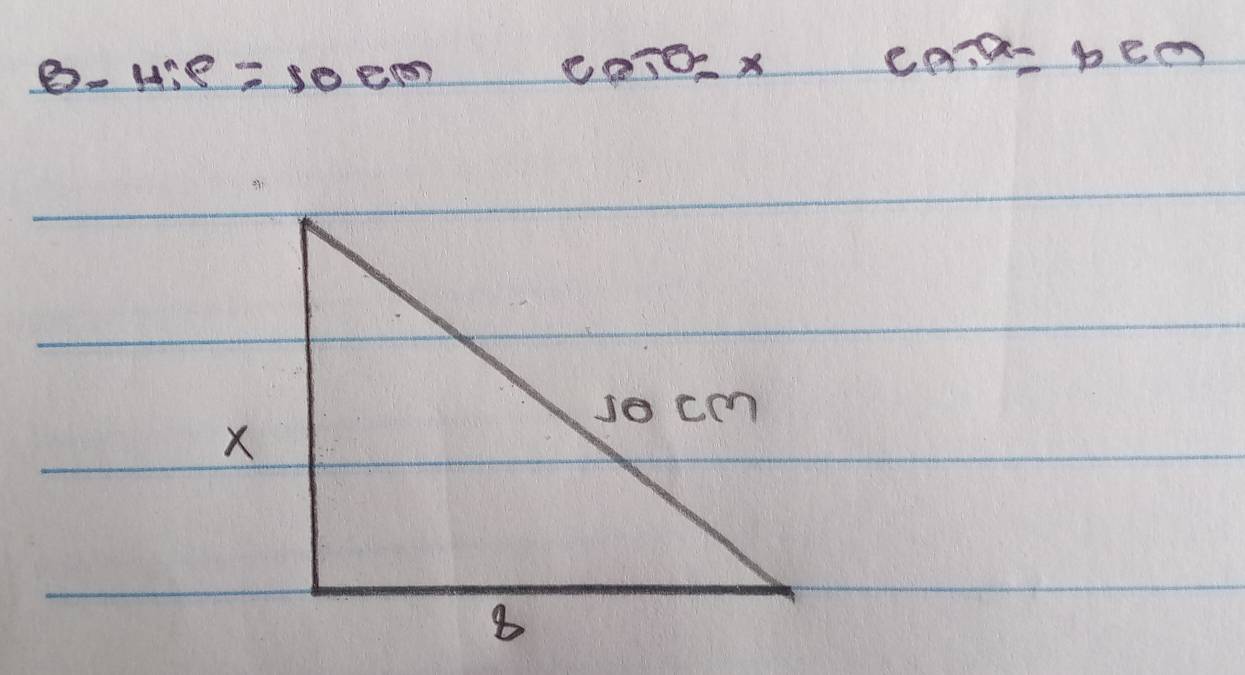 B- Hip = 10 cm   CATO= x   CATA= 8 cm
10 cm
x
8